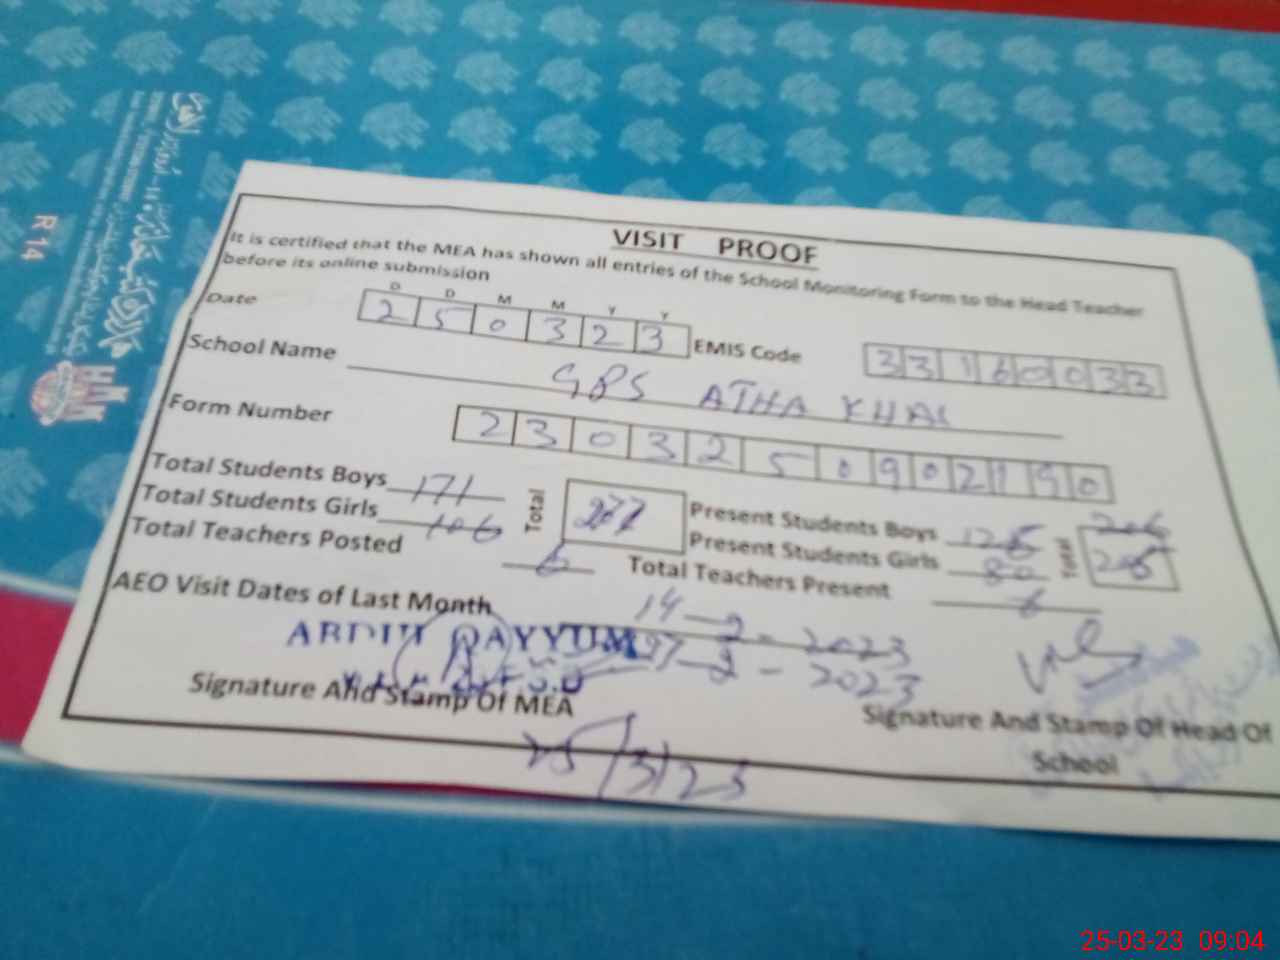 R 14
VISIT PROOF
It is certified that the MEA has shown all entries of the School Monitoring Form to the Head Teacher
before its online submission
D D M M Y Y
Date 2 5 0 3 2 3 EMIS Code 3 3 1 6 0 0 3 3
School Name GPS ATHA KHAL
Form Number 2 3 0 3 2 5 0 9 0 2 1 9 0
Total Students Boys 171 Total 277 Present Students Boys 126 Total 206
Total Students Girls 106 Present Students Girls 80 206
Total Teachers Posted 6 Total Teachers Present 6
AEO Visit Dates of Last Month 14-2-2023
ABDUL QAYYUM 27-2-2023
Signature And Stamp Of MEA
Signature And Stamp Of Head Of
School
25/3/23
25-03-23 09:04